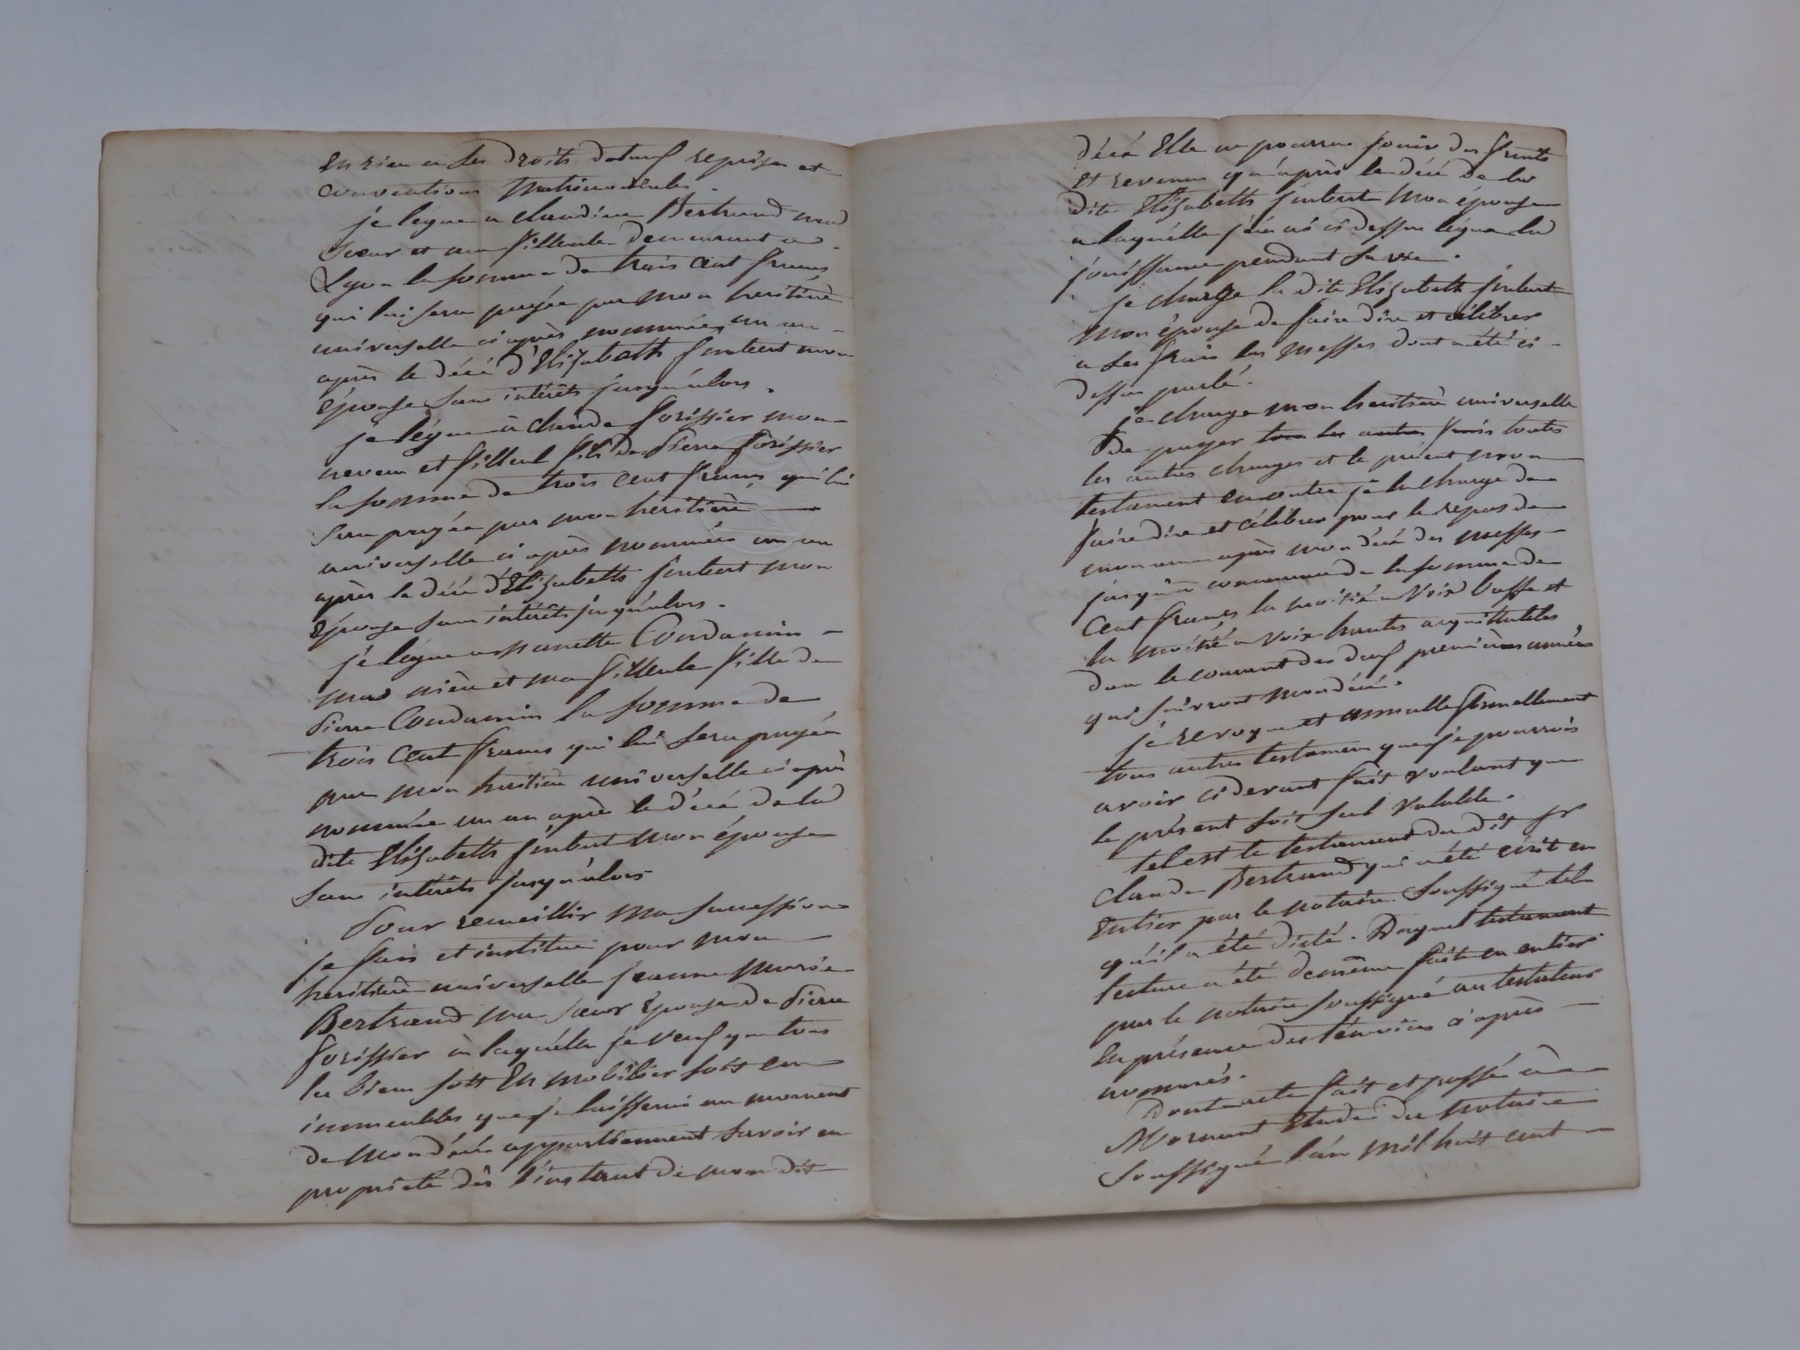 En rien a ses droits dotauf reprises et
conventions Matrimoniales.
je legue a claudine Bertrand mad
sœur et ma filleule demeurant a
Lyon la somme de trois cent francs
qui lui sera payée par mon heritière
universelle ci après nommée, un an
après le décé d'Elizabeth Jmbert mon
épouse sans intérêts jusqu'alors.
je lègue à claude forissier mon
neveu et filleul fils de Pierre forissier
la somme de trois cent francs qui lui
sera payée par mon heritière
universelle ci après nommée un an
après le décé d'Elizabeth Jmbert mon
épouse sans intérêts jusqu'alors.
je lègue a nanette Condamin
mad nièce et ma filleule fille de
Pierre Condamin la somme de
trois cent francs qui lui sera payée
par mon heritière universelle ci après
nommée un an après le décé de lad
dite Elizabeth Jmbert mon épouse
sans intérêts jusqu'alors
Pour receuillir ma succession
je fais et institue pour mon
heritière universelle jeanne Marie
Bertrand ma sœur épouse de Pierre
forissier à laquelle je veuf que tous
les biens soit En mobilier soit en
immeubles que je laisserai au moment
de mon décé appartiennent savoir en
propriété dès l'instant de mon dit
décé Elle ne pourra jouir des fruits
et revenus qu'après le décé de lad
dite Elizabeth Jmbert Mon épouse
a laquelle j'en ai ci dessus légué lad
jouissance pendant sa vie.
je charge la dite Elizabeth Jmbert
Mon épouse de faire dire et célébrer
a ses frais les Messes dont a été ci
dessus parlé.
je charge mon heritière universelle
de payer tous les autres frais toutes
les autres charges et le présent mon
testament en outre je la charge de
faire dire et célébrer pour le repos de
mon ame après mon décé des messes
jusqu'à concurrence de la somme de
Cent francs la moitié a Voix basse et
la moitié a Voix hautes acquittables
dans le courant des deuf premières années
qui suivront mon décé.
je revoque et annulle formellement
tous autres testamens que je pourrois
avoir ci devant fait voulant que
le présent soit seul Valable.
tel est le testament du dit sr
Claude Bertrand qui a été écrit en
Entier par le notaire soussigné tel
qu'il a été dicté. Duquel testament
lecture a été de même faite en entier
par le notaire soussigné au testateur
En présence des témoins ci après
nommés.
Dont acte fait et passé à
Mornant Etude du Notaire
soussigné l'an mil huit cent